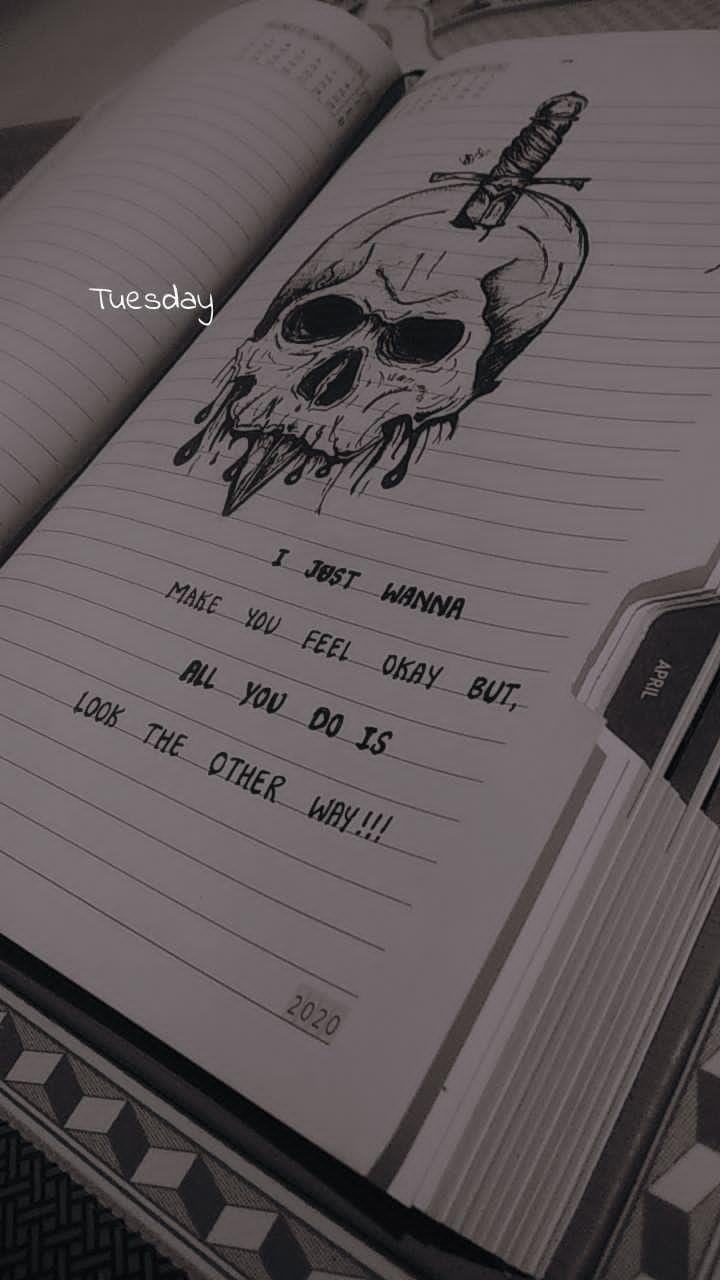 Tuesday
I JUST WANNA
MAKE YOU FEEL OKAY BUT,
ALL YOU DO IS
LOOK THE OTHER WAY!!!
APRIL
2020